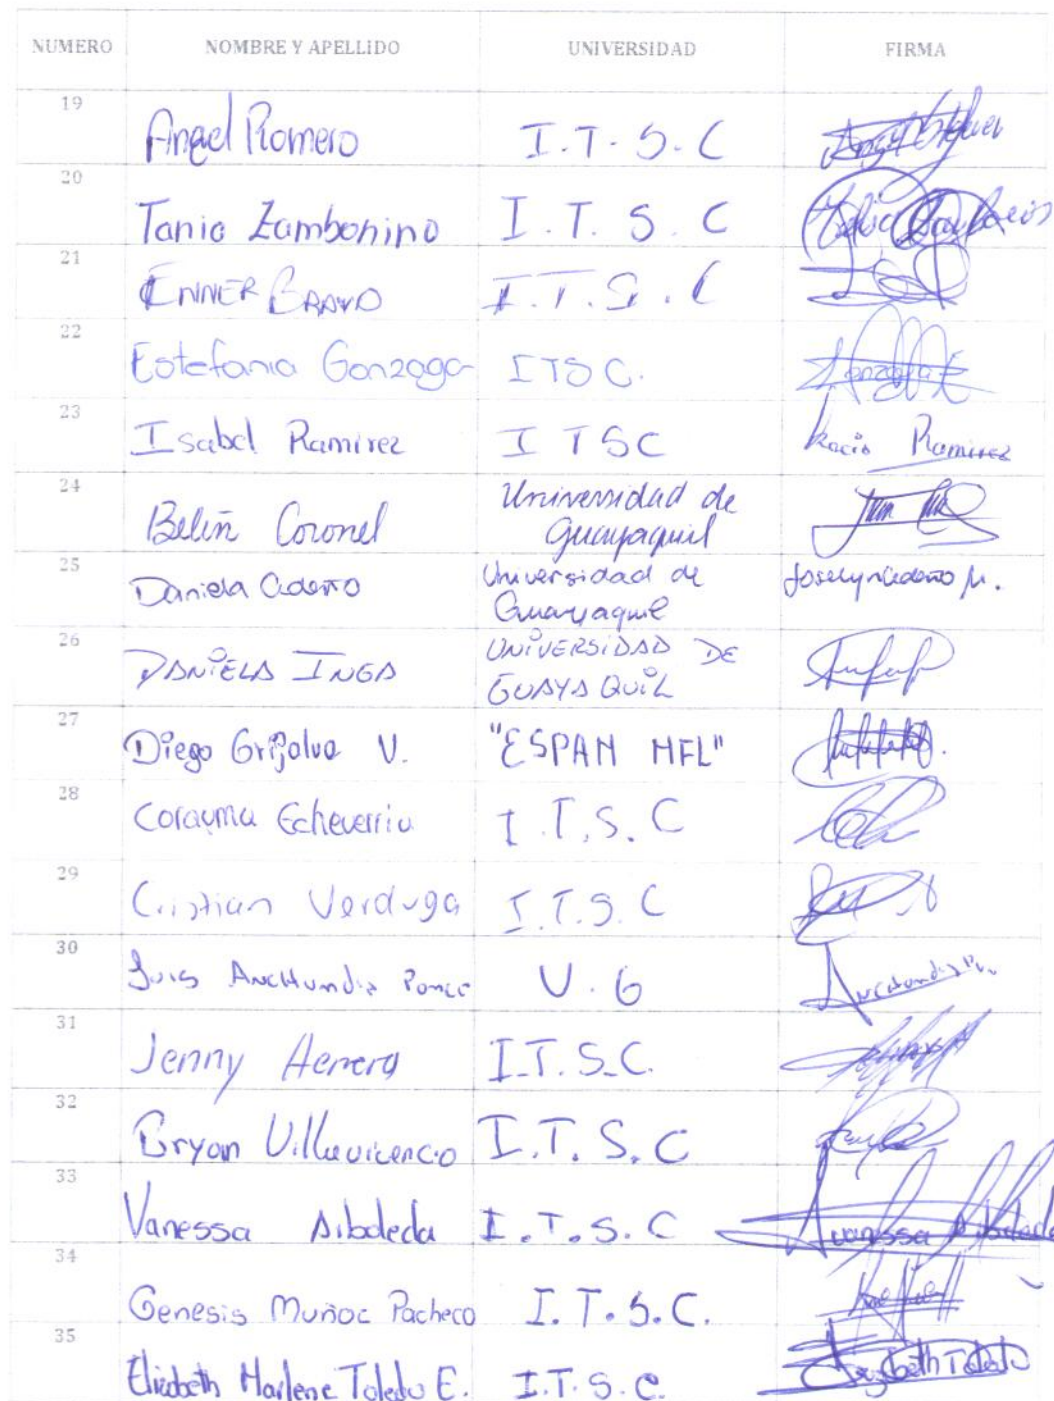 NUMERO NOMBRE Y APELLIDO UNIVERSIDAD FIRMA
19 Angel Romero I.T.S.C
20 Tania Zambonino I.T.S.C
21 ENNER BRAVO I.T.S.C
22 Estefania Gonzaga ITSC. Gonzaga E
23 Isabel Ramirez ITSC Rocio Ramirez
24 Belén Coronel Universidad de
Guayaquil
25 Daniela Cedeño Universidad de Joselyn Cedeño M.
Guayaquil
26 DANIELA INGA UNIVERSIDAD DE
GUAYAQUIL
27 Diego Grijalva V. "ESPAM MFL"
28 Corayma Echeverria I.T.S.C
29 Cristian Verduga I.T.S.C
30 Luis Anchundia Ponce U.G Anchundia
31 Jenny Herrera I.T.S.C.
32 Bryan Villavicencio I.T.S.C
33 Vanessa Aiboleda I.T.S.C Vanessa Aiboleda
34 Genesis Muñoc Pacheco I.T.S.C.
35 Elizabeth Marlene Toledo E. I.T.S.C. Elizabeth Toledo